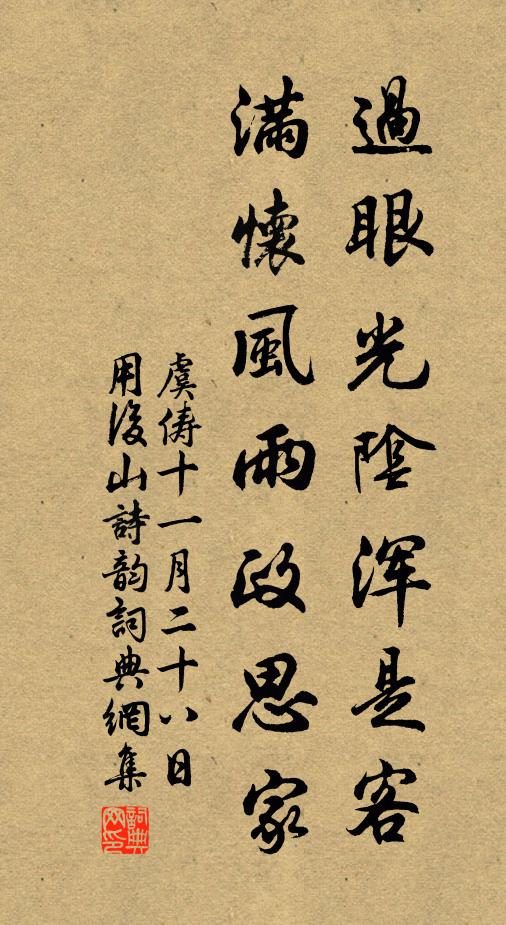 過眼光陰渾是客
滿懷風雨政思家
虞儔十一月二十八日
用後山詩韵詞典網集
詞典网印